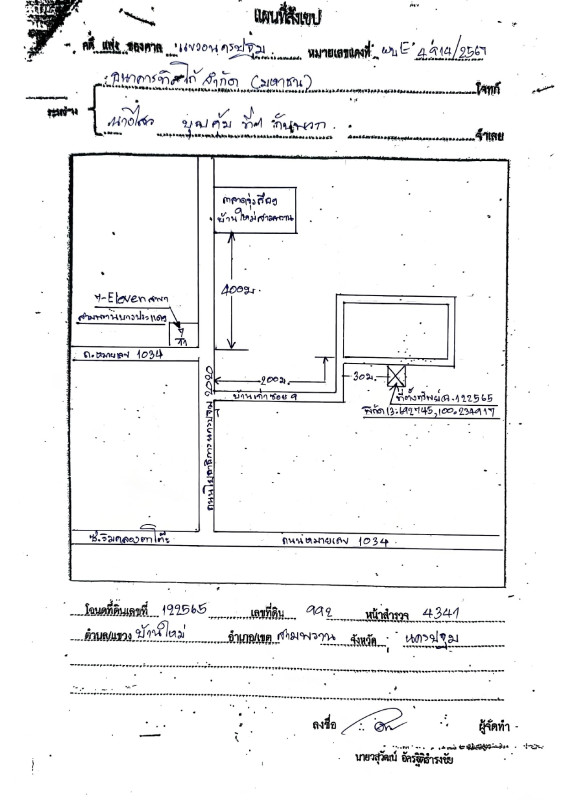 แผนที่สังเขป
คดี แพ่ง ของศาล แขวงนครปฐม หมายเลขแดงที่ ผบE 4914/2567
ธนาคารทิสโก้ จำกัด (มหาชน) โจทก์
ระหว่าง
นายไสว บุญคุ้ม ที่1 กับพวก จำเลย
ตลาดรุ่งเรือง
บ้านใหม่สามพราน
400ม.
7-Eleven สาขา
สามพรานบางประแดง
ถ.หมายเลข 1034
200ม.
30ม.
บ้านเก่าซอย 9
ที่ตั้งทรัพย์ฉ.122565
พิกัด 13.692745,100.234917
ซ.ริมคลองตาโต๊ะ
ถนนหมายเลข 1034
โฉนดที่ดินเลขที่ 122565 เลขที่ดิน 992 หน้าสำรวจ 4341
ตำบล/แขวง บ้านใหม่ อำเภอ/เขต สามพราน จังหวัด นครปฐม
ลงชื่อ ผู้จัดทำ
นายวสุวัฒน์ อัครฐิติธำรงชัย